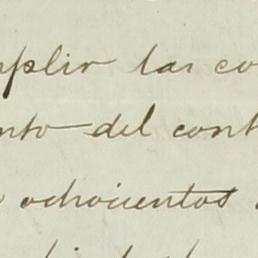 mplir las co
nto del cont
ochocientos